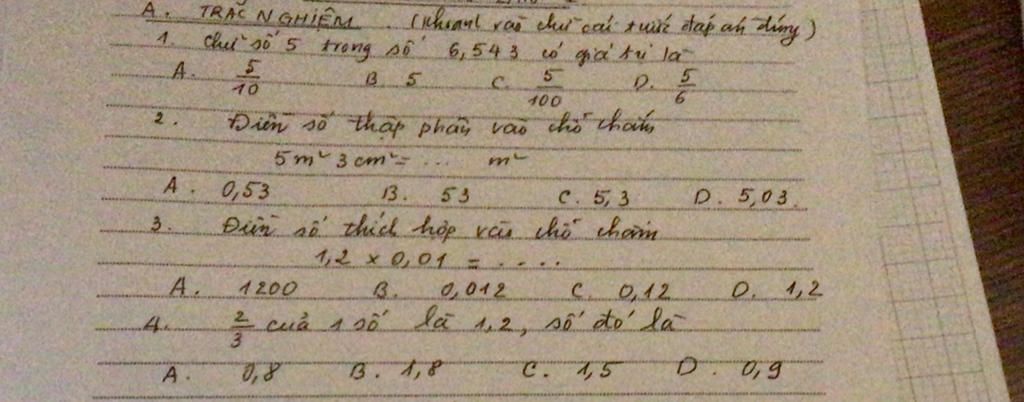 A. TRẮC NGHIỆM (Khoanh vào chữ cái trước đáp án đúng)
1. Chữ số 5 trong số 6,543 có giá trị là
A. 5/10 B. 5 C. 5/100 D. 5/6
2. Điền số thập phân vào chỗ chấm
5m² 3cm² = ... m²
A. 0,53 B. 53 C. 5,3 D. 5,03.
3. Điền số thích hợp vào chỗ chấm
1,2 × 0,01 = .....
A. 1200 B. 0,012 C. 0,12 D. 1,2
4. 2/3 của 1 số là 1,2, số đó là
A. 0,8 B. 1,8 C. 1,5 D. 0,9